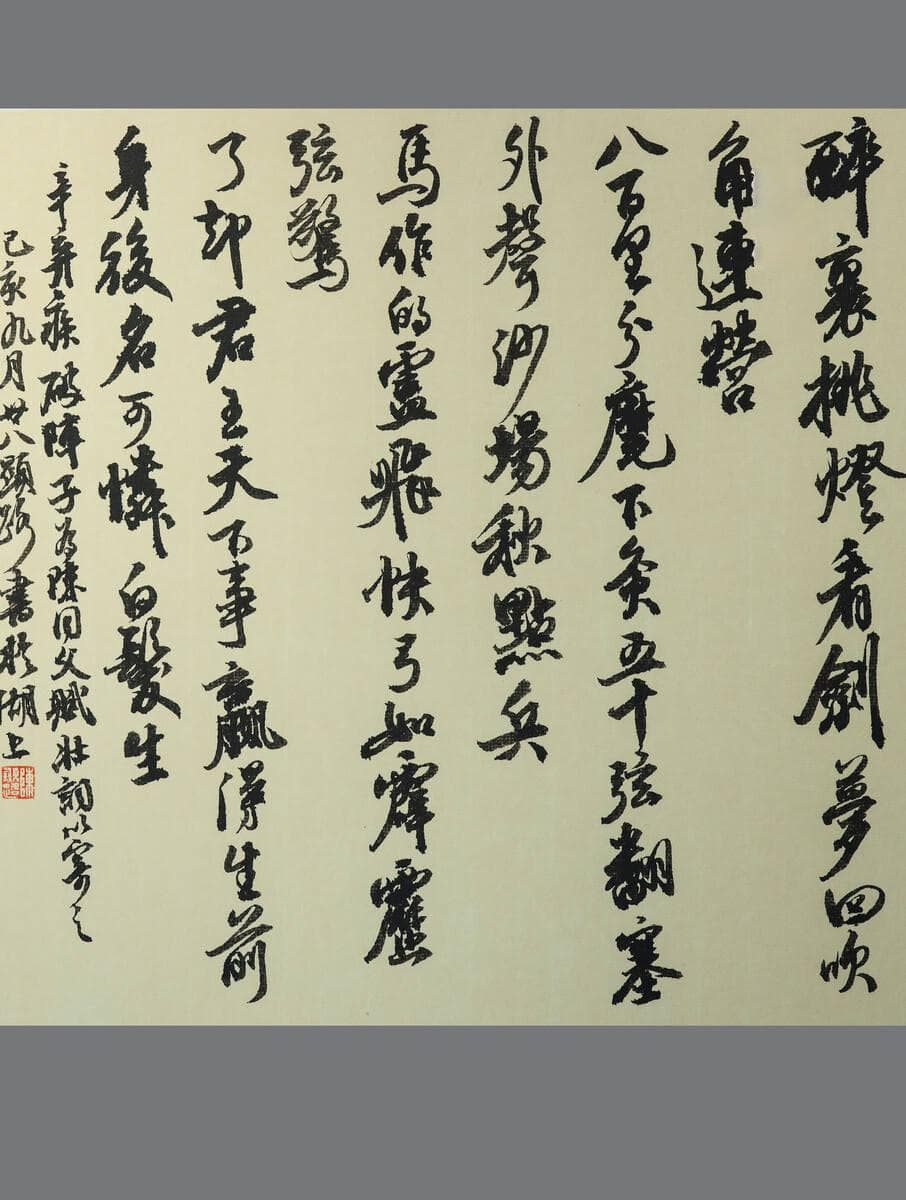 醉裏挑燈看劍夢回吹
角連營
八百里分麾下炙五十弦翻塞
外聲沙場秋點兵
馬作的盧飛快弓如霹靂
弦驚
了却君王天下事贏得生前
身後名可憐白髮生
辛弃疾破陣子為陳同父賦壯詞以寄之
己亥九月廿八顕路書於湖上